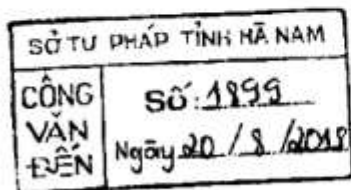 SỞ TƯ PHÁP TỈNH HÀ NAM
CÔNG VĂN ĐẾN
Số: 1899
Ngày 20 / 8 / 2018